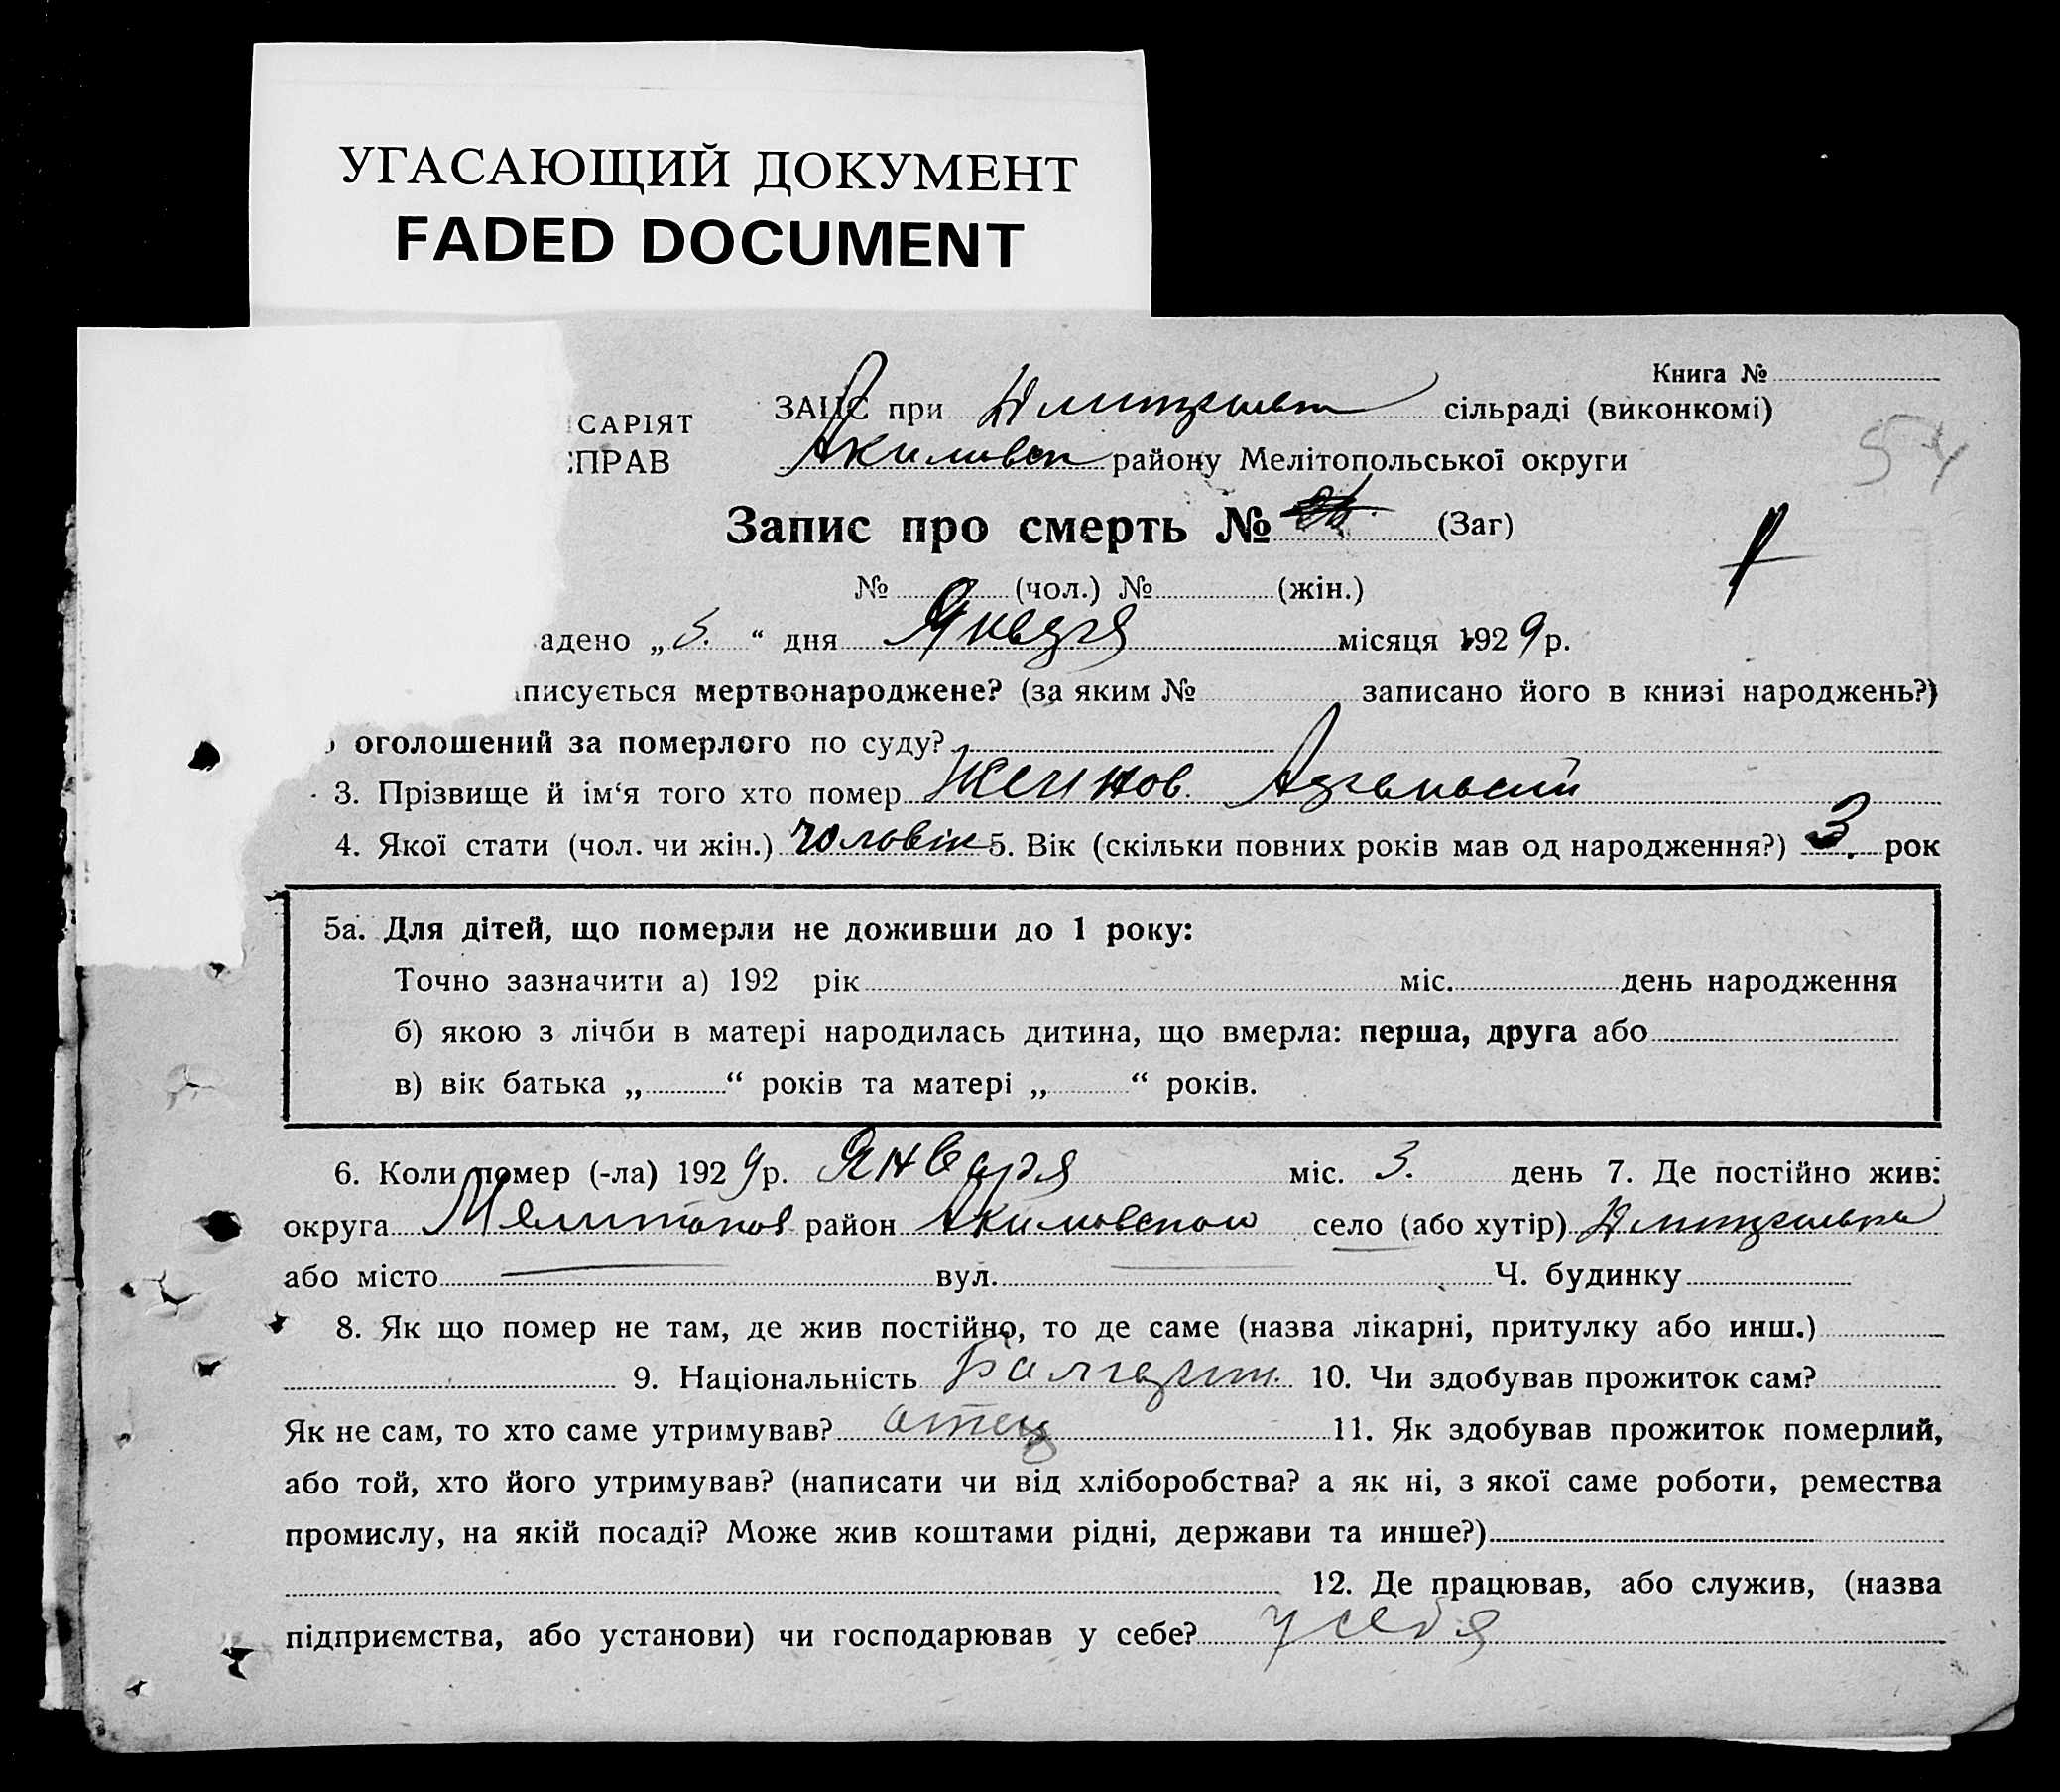 УГАСАЮЩИЙ ДОКУМЕНТ
FADED DOCUMENT
Книга №
САРІЯТ ЗАЦС при сільраді (виконкомі)
54
СПРАВ Акимовск району Мелітопольської округи
Запис про смерть № (Заг)
№ (чол.) № (жін.)
адено „5.“ дня Января місяця 1929 р.
писується мертвонароджене? (за яким № записано його в книзі народжень?)
оголошений за померлого по суду?
3. Прізвище й ім‘я того хто помер
4. Якої стати (чол. чи жін.) Чоловік 5. Вік (скільки повних років мав од народження?) 3. рок
5а. Для дітей, що померли не доживши до 1 року:
Точно зазначити а) 192 рік міс. день народження
б) якою з лічби в матері народилась дитина, що вмерла: перша, друга або
в) вік батька „ “ років та матері „ “ років.
6. Коли помер (-ла) 1929 р. Января міс. 3. день 7. Де постійно жив:
округа Мелитопов район Акимовского село (або хутір)
або місто вул. Ч. будинку
8. Як що помер не там, де жив постійно, то де саме (назва лікарні, притулку або инш.)
9. Національність Болгарин. 10. Чи здобував прожиток сам?
Як не сам, то хто саме утримував? отец 11. Як здобував прожиток померлий,
або той, хто його утримував? (написати чи від хліборобства? а як ні, з якої саме роботи, ремества
промислу, на якій посаді? Може жив коштами рідні, держави та инше?)
12. Де працював, або служив, (назва
підприємства, або установи) чи господарював у себе? у себя